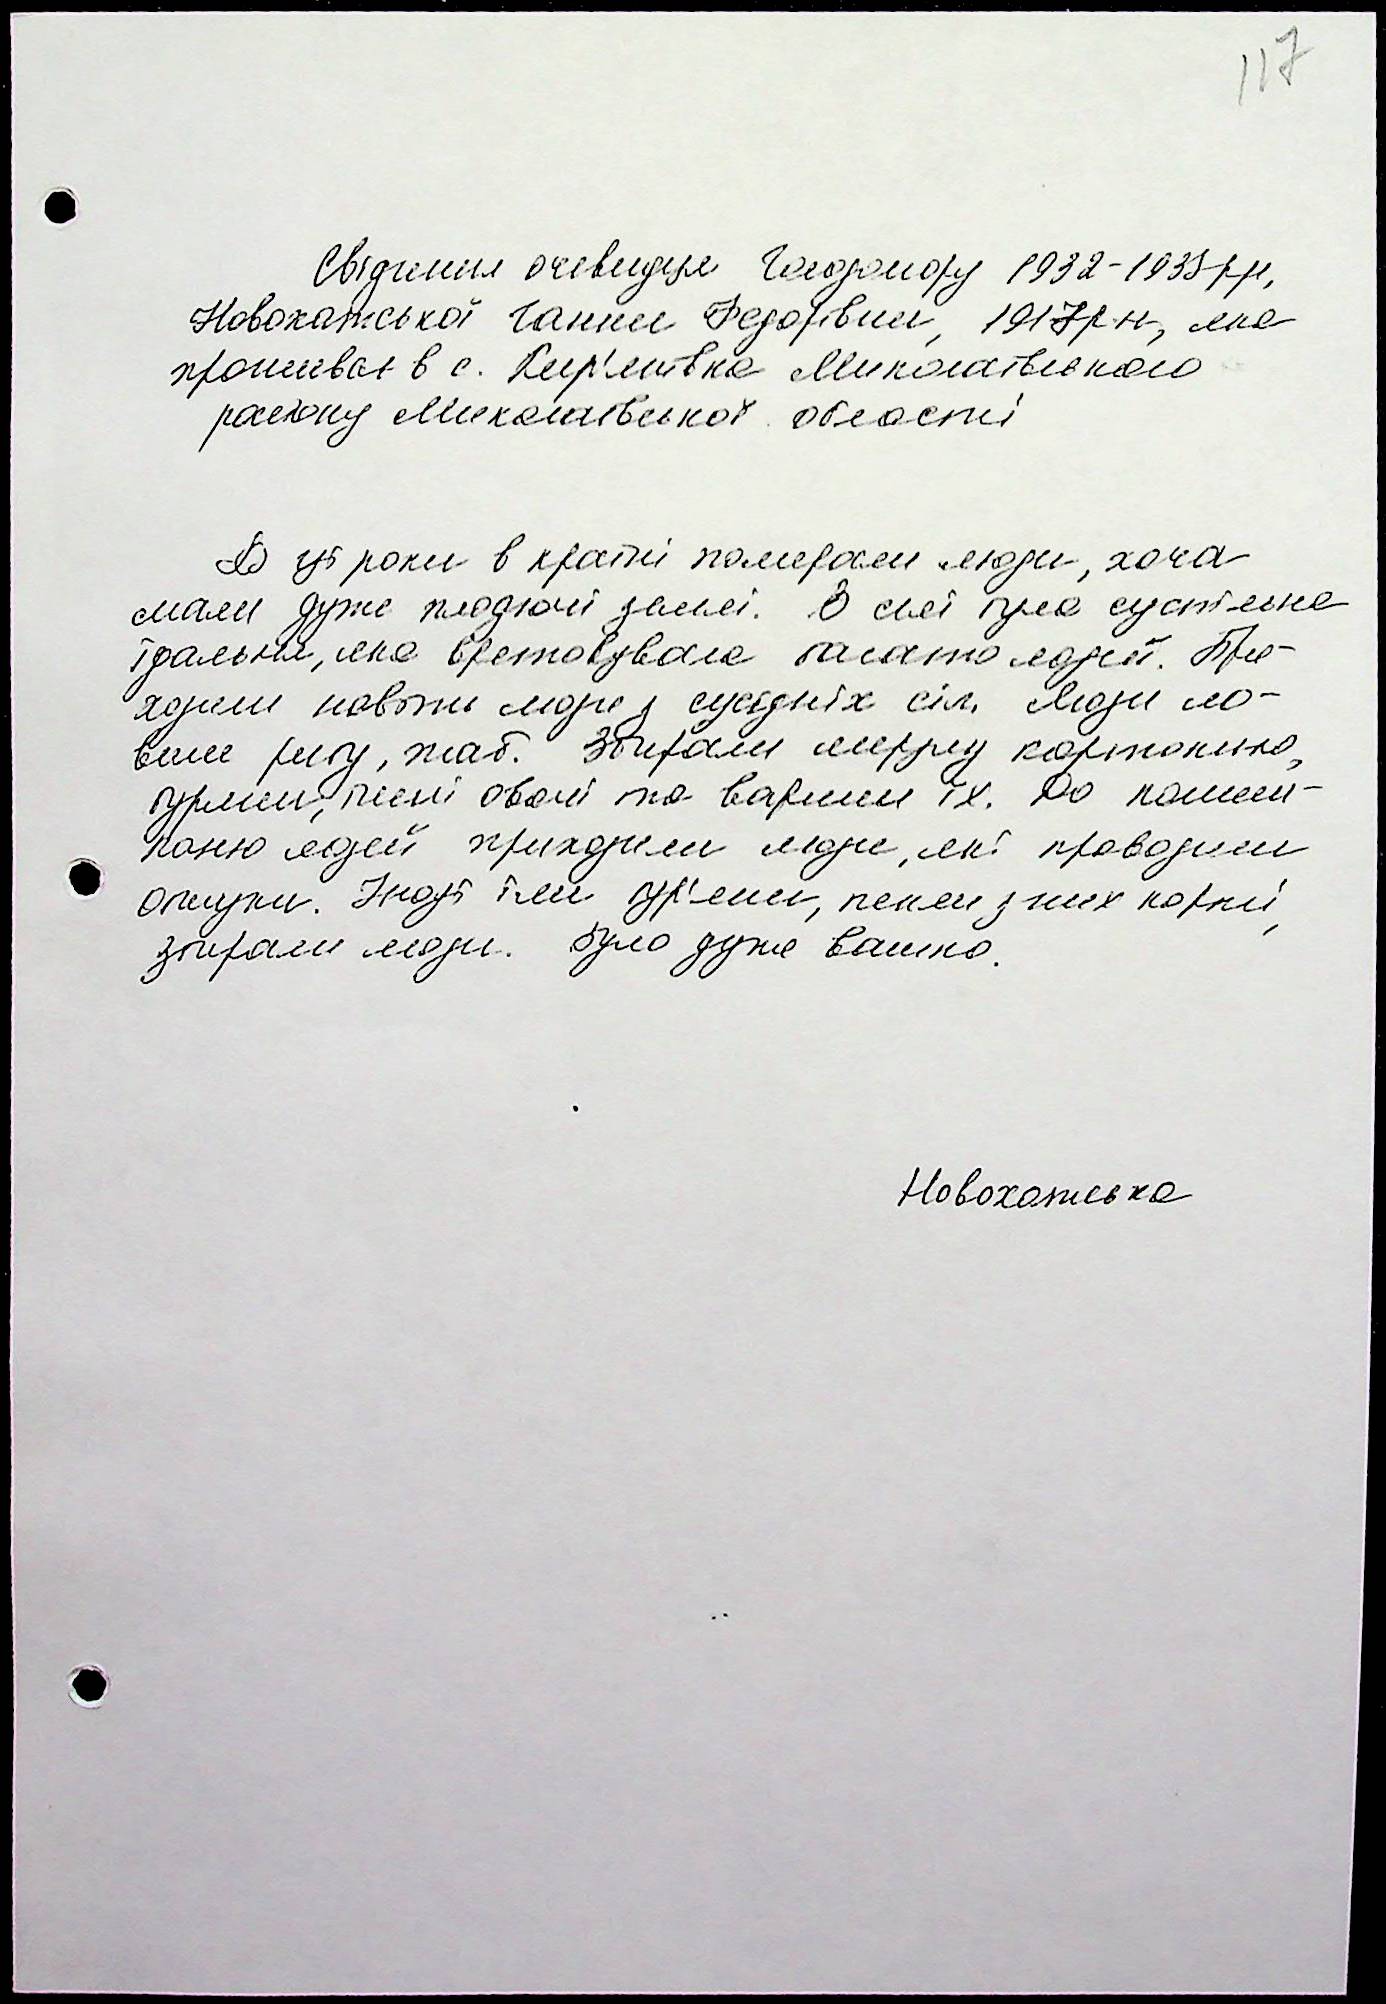 117
Свідчення очевидця Голодомору 1932-1933рр,
Новохатської Ганни Федорівни, 1917р.н, яка
проживає в с. Кир'яківка Миколаївського
району Миколаївської області
В ці роки в країні помирали люди, хоча
мали дуже плодючі землі. В селі була суспільна
їдальня, яка врятовувала багато людей. При-
ходили навіть люди з сусідніх сіл. Люди ло-
вили рибу, жаб. Збирали мерзлу картоплю,
буряки, гнилі овочі та варили їх. До
людей приходили люди, які проводили
обшуки. Іноді їли бур'яни, пекли з них коржі,
збирали люди. Було дуже важко.
Новохатська